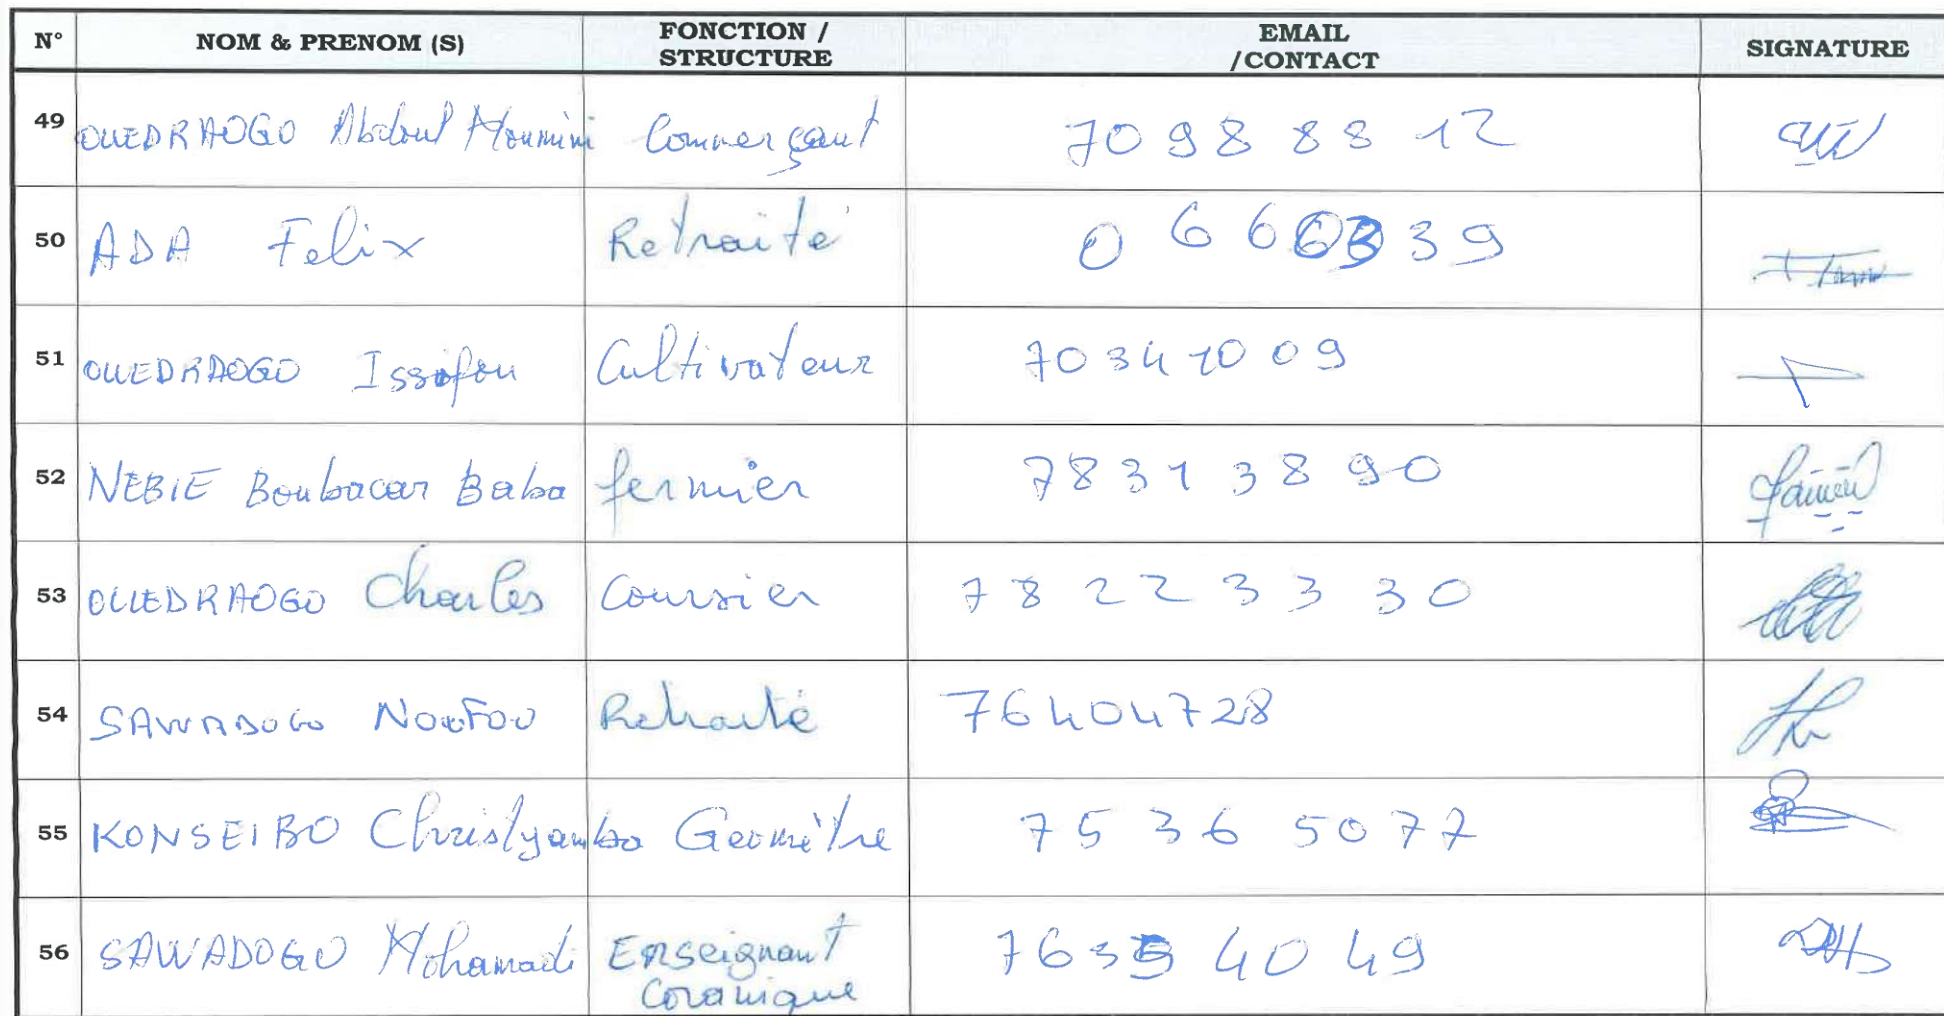 N° NOM & PRENOM (S) FONCTION / STRUCTURE EMAIL /CONTACT SIGNATURE
49 OUEDRAOGO Abdoul Moumini Commerçant 70 98 88 12
50 ADA Felix Retraité 0 6 6 39
51 OUEDRAOGO Issofou Cultivateur 70 34 10 09
52 NEBIE Boubacar Baba fermier 78 31 38 90
53 OUEDRAOGO Charles Coursier 78 22 33 30
54 SAWADOGO NOUFOU Retraité 76404728
55 KONSEIBO Christyamba Geomètre 75 36 50 77
56 SAWADOGO Mohamadi Enseignant
Coranique 40 49